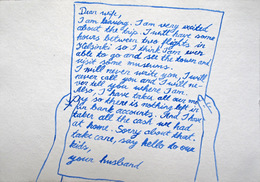 Dear wife,
I am leaving. I am very exited
about the trip. I will have some
hours between two flights in
Helsinki so I think I am
able to go and see the town and
visit some museums.
I will never write you, I will
never call you and I will ne-
ver tell you where I am.
Also, I have taken all our mo-
ney so there is nothing left
in bank accounts. And I have
taken all the cash we had
at home. Sorry about that.
take care, say hello to our
kids,
your husband